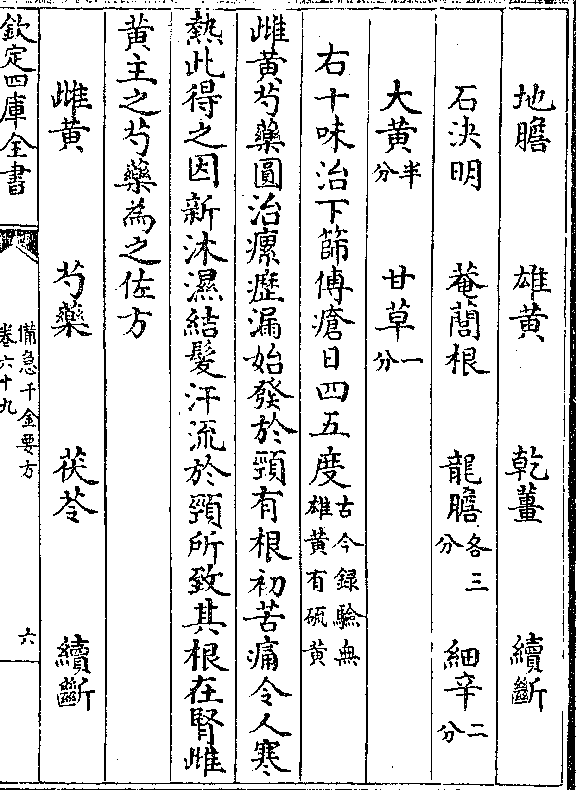 地膽 雄黃 乾薑 續斷
石決明 菴䕡根 龍膽各三分 細辛二分
大黃半分 甘草一分
右十味治下篩傅瘡日四五度古今録驗無雄黃有硫黃
雌黃芍藥圓治瘰癧漏始發於頸有根初苦痛令人寒
熱此得之因新沐濕結髮汗流於頸所致其根在腎雌
黃主之芍藥為之佐方
雌黃 芍藥 茯苓 續斷
欽定四庫全書 備急千金要方卷六十九 六